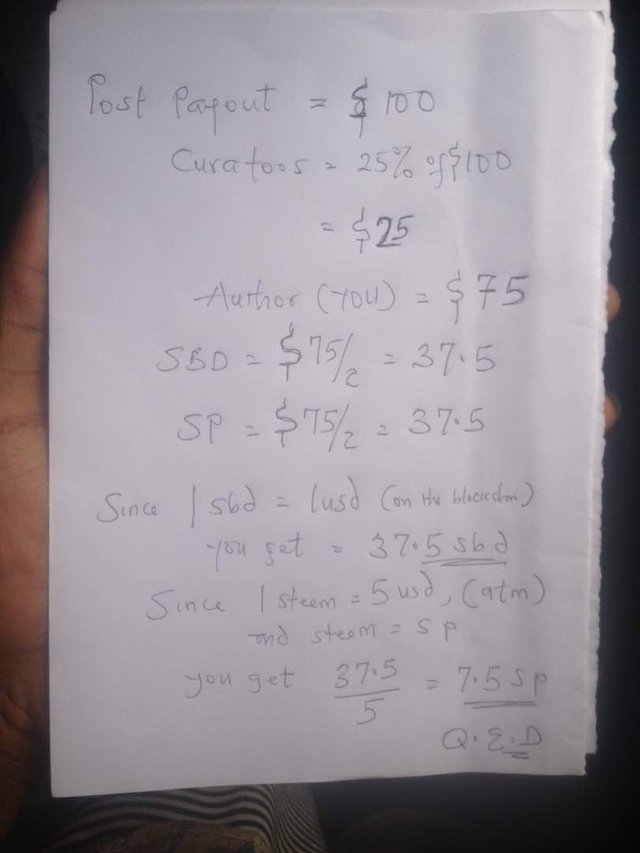 Post Payout = $100
Curators = 25% of $100
= $25
Author (YOU) = $75
SBD = $75/2 = 37.5
SP = $75/2 = 37.5
Since 1 sbd = 1usd (on the blockchain)
you get = 37.5 sbd
Since 1 steem = 5 usd, (atm)
and steem = sp
you get 37.5/5 = 7.5 SP
Q.E.D